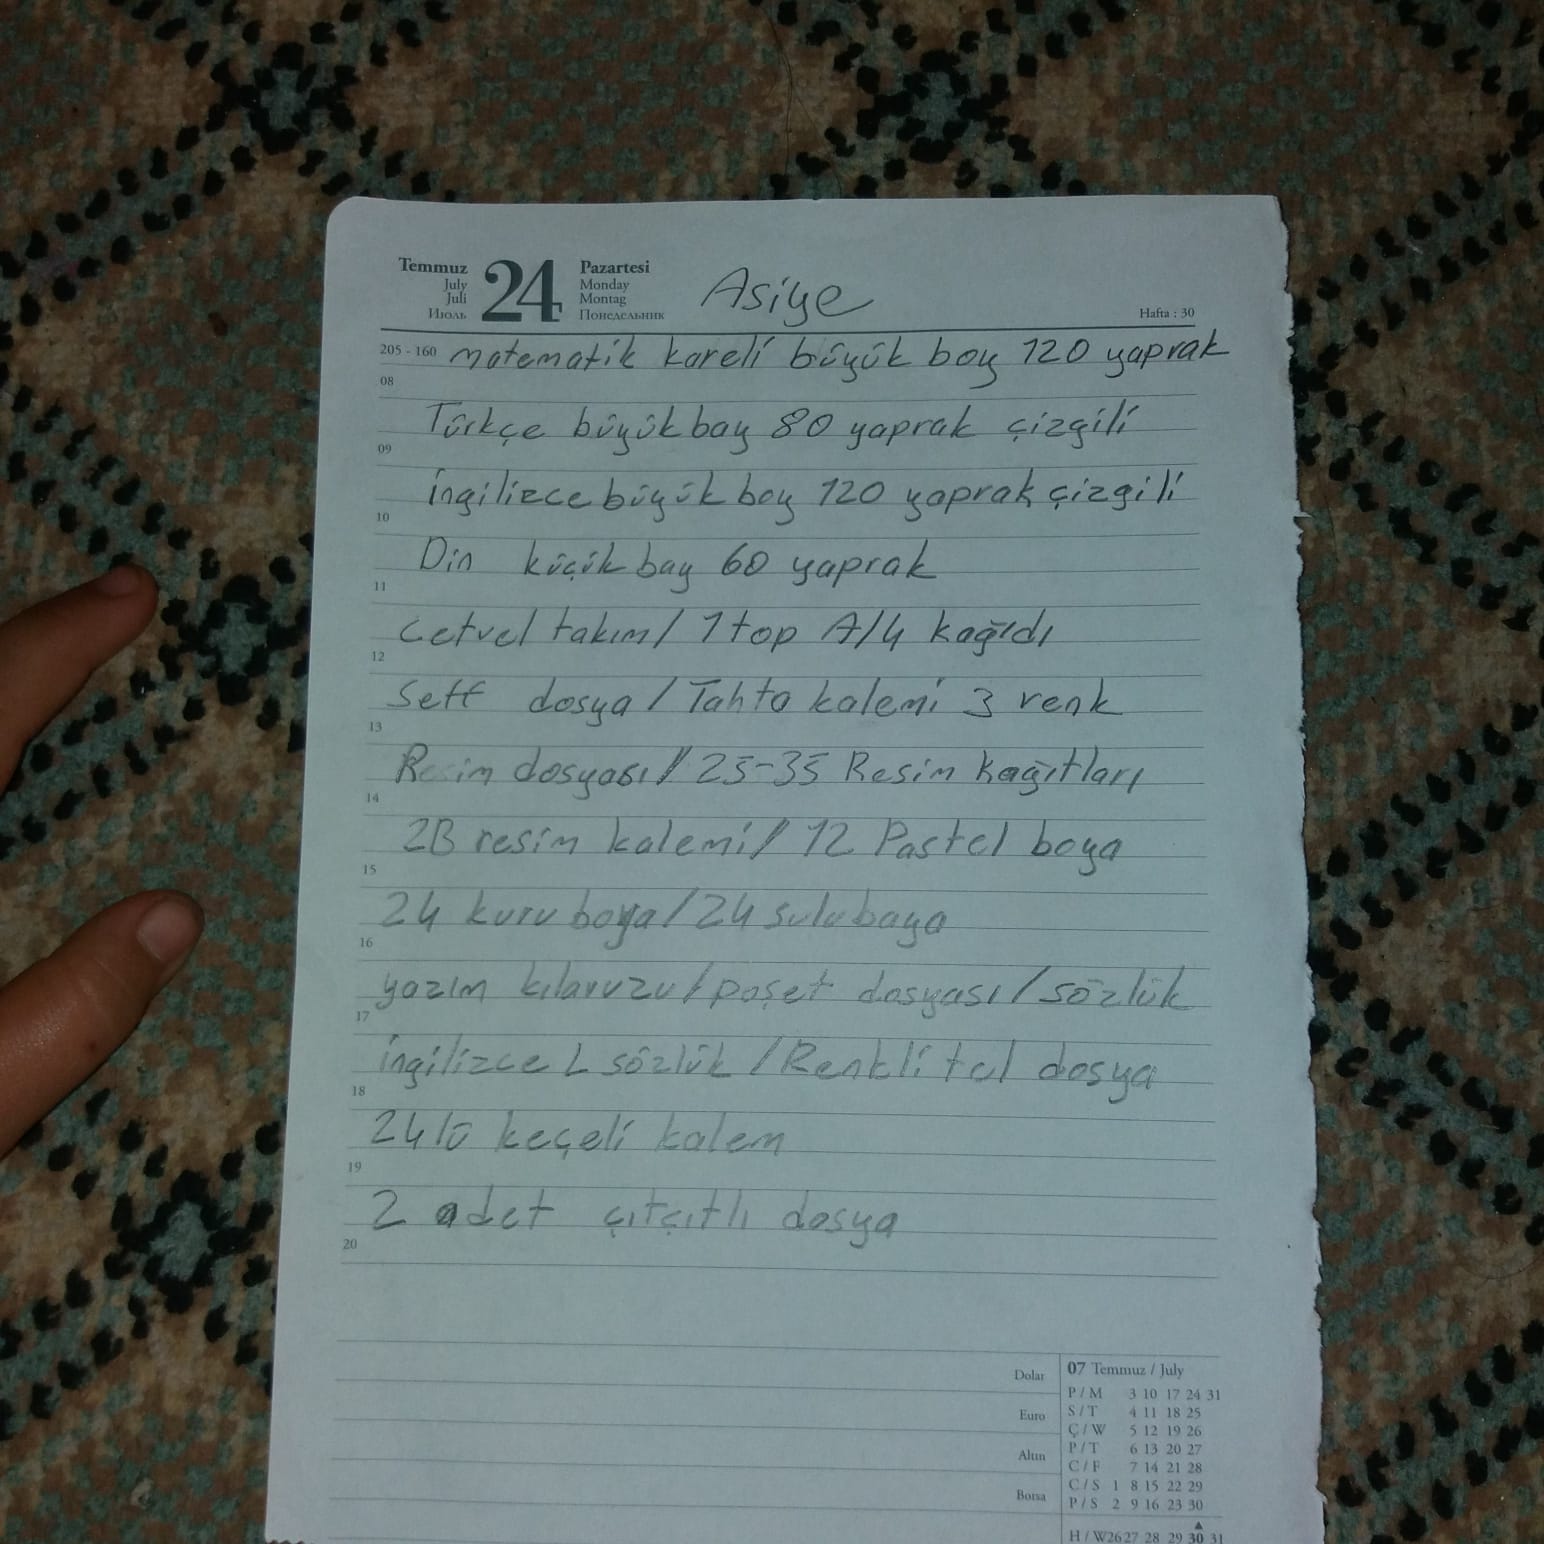 Temmuz 24 Pazartesi Asiye
July Monday
Juli Montag
Июль Понедельник Hafta : 30
205 - 160 matematik kareli büyük boy 120 yaprak
08
Türkçe büyük bay 80 yaprak çizgili
09
ingilizce büyük boy 120 yaprak çizgili
10
Din küçük bay 60 yaprak
11
cetvel takım / 1 top A/4 kağıdı
12
Seff dosya / Tahta kalemi 3 renk
13
Resim dosyası / 25-35 Resim kağıtları
14
2B resim kalemi / 12 Pastel boya
15
24 kuru boya / 24 sulu baya
16
yazım kılavuzu / poşet dosyası / sözlük
17
ingilizce L sözlük / Renkli tel dosya
18
24lü keçeli kalem
19
2 adet çıtçıtlı dosya
20
Dolar
Euro
Altın
Borsa
07 Temmuz / July
P / M 3 10 17 24 31
S / T 4 11 18 25
Ç / W 5 12 19 26
P / T 6 13 20 27
C / F 7 14 21 28
C / S 1 8 15 22 29
P / S 2 9 16 23 30
H / W 26 27 28 29 30 31